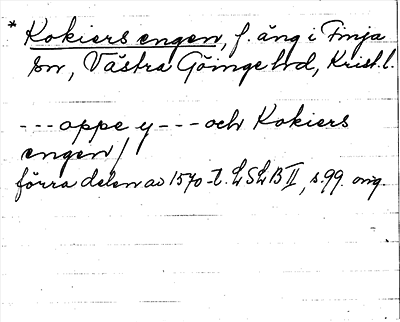 * Kokiers engen, f. äng i Finja
sn, Västra Göinge hd, Krist. l.
--- oppe y --- och Kokiers
engen /
förra delen av 1570-t. LSLB II, s. 99. orig.